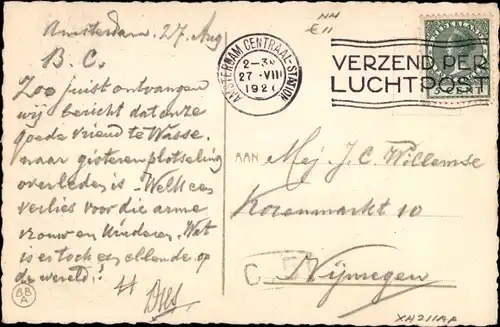 Amsterdam. 27 Aug
B. C.
Zoo juist ontvangen
wij bericht dat onze
goede vriend te Wasse-
naar gisteren plotseling
overleden is - Welk een
verlies voor die arme
vrouw en kinderen. Wat
is er toch een ellende op
de wereld!
AMSTERDAM CENTRAAL-STATION
2-3N
27.VIII
192
VERZEND PER
LUCHTPOST
NEDERLAND
CENT
AAN Mej. J. C. Willemse
Korenmarkt 10
Nijmegen
XH211AA